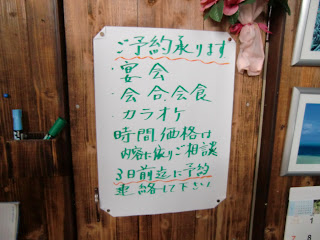 ご予約承ります
・宴会
・会合、会食
・カラオケ
時間、価格は
内容に依りご相談
3日前迄に予約
連絡して下さい